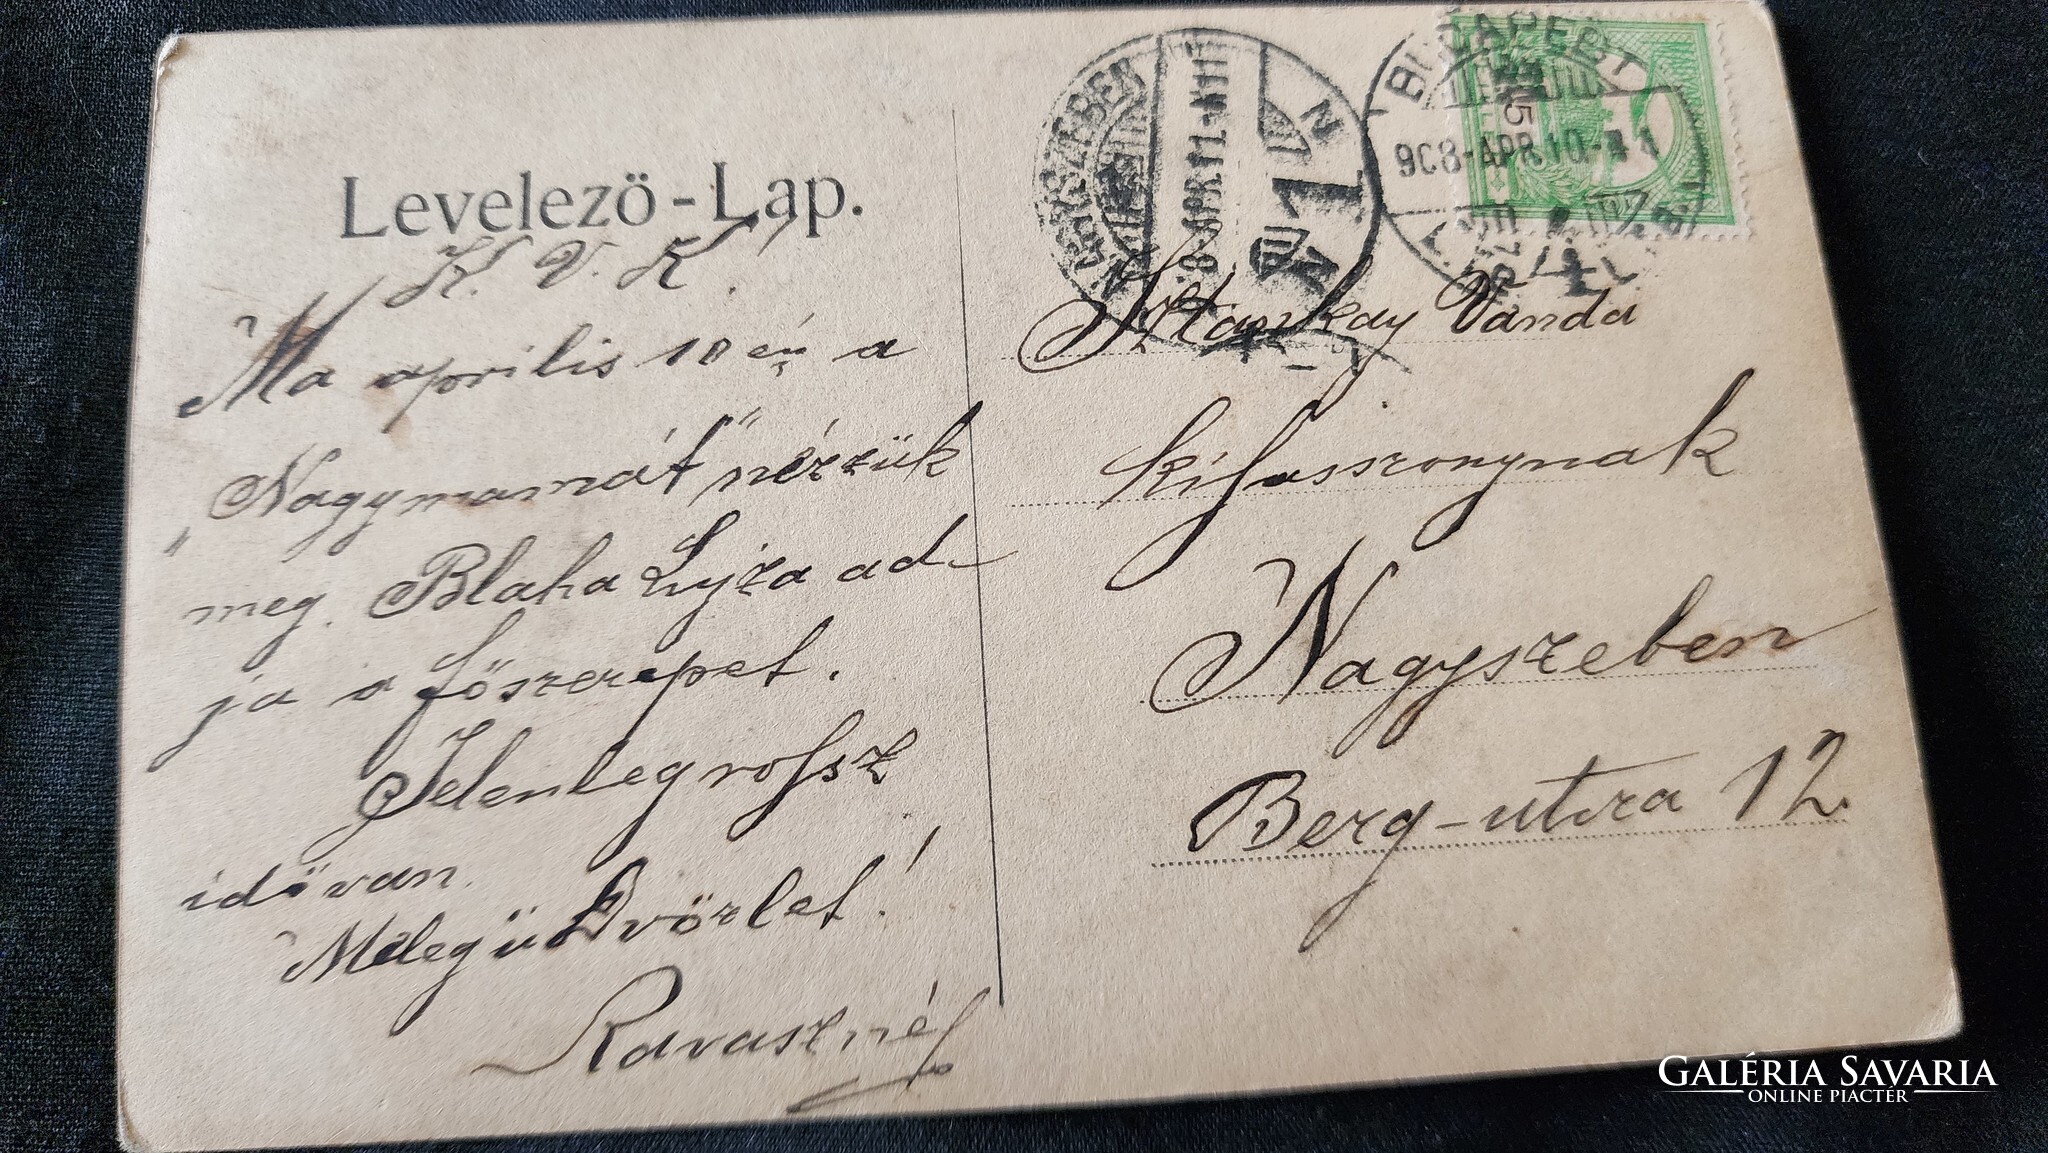 Levelező-Lap.
K. V. K!
Ma április 10 én a
„Nagymamát" nézzük
meg. Blaha Lujza ad-
ja a főszerepet.
Jelenleg rossz
idő van.
Meleg üdvözlet!
Ravaszné
NAGYSZEBEN
908-APR.11
N 1
BUDAPEST
908-APR.10
5
Stankay Vanda
kisasszonynak
Nagyszeben
Berg-utcza 12.
GALÉRIA SAVARIA
ONLINE PIACTÉR